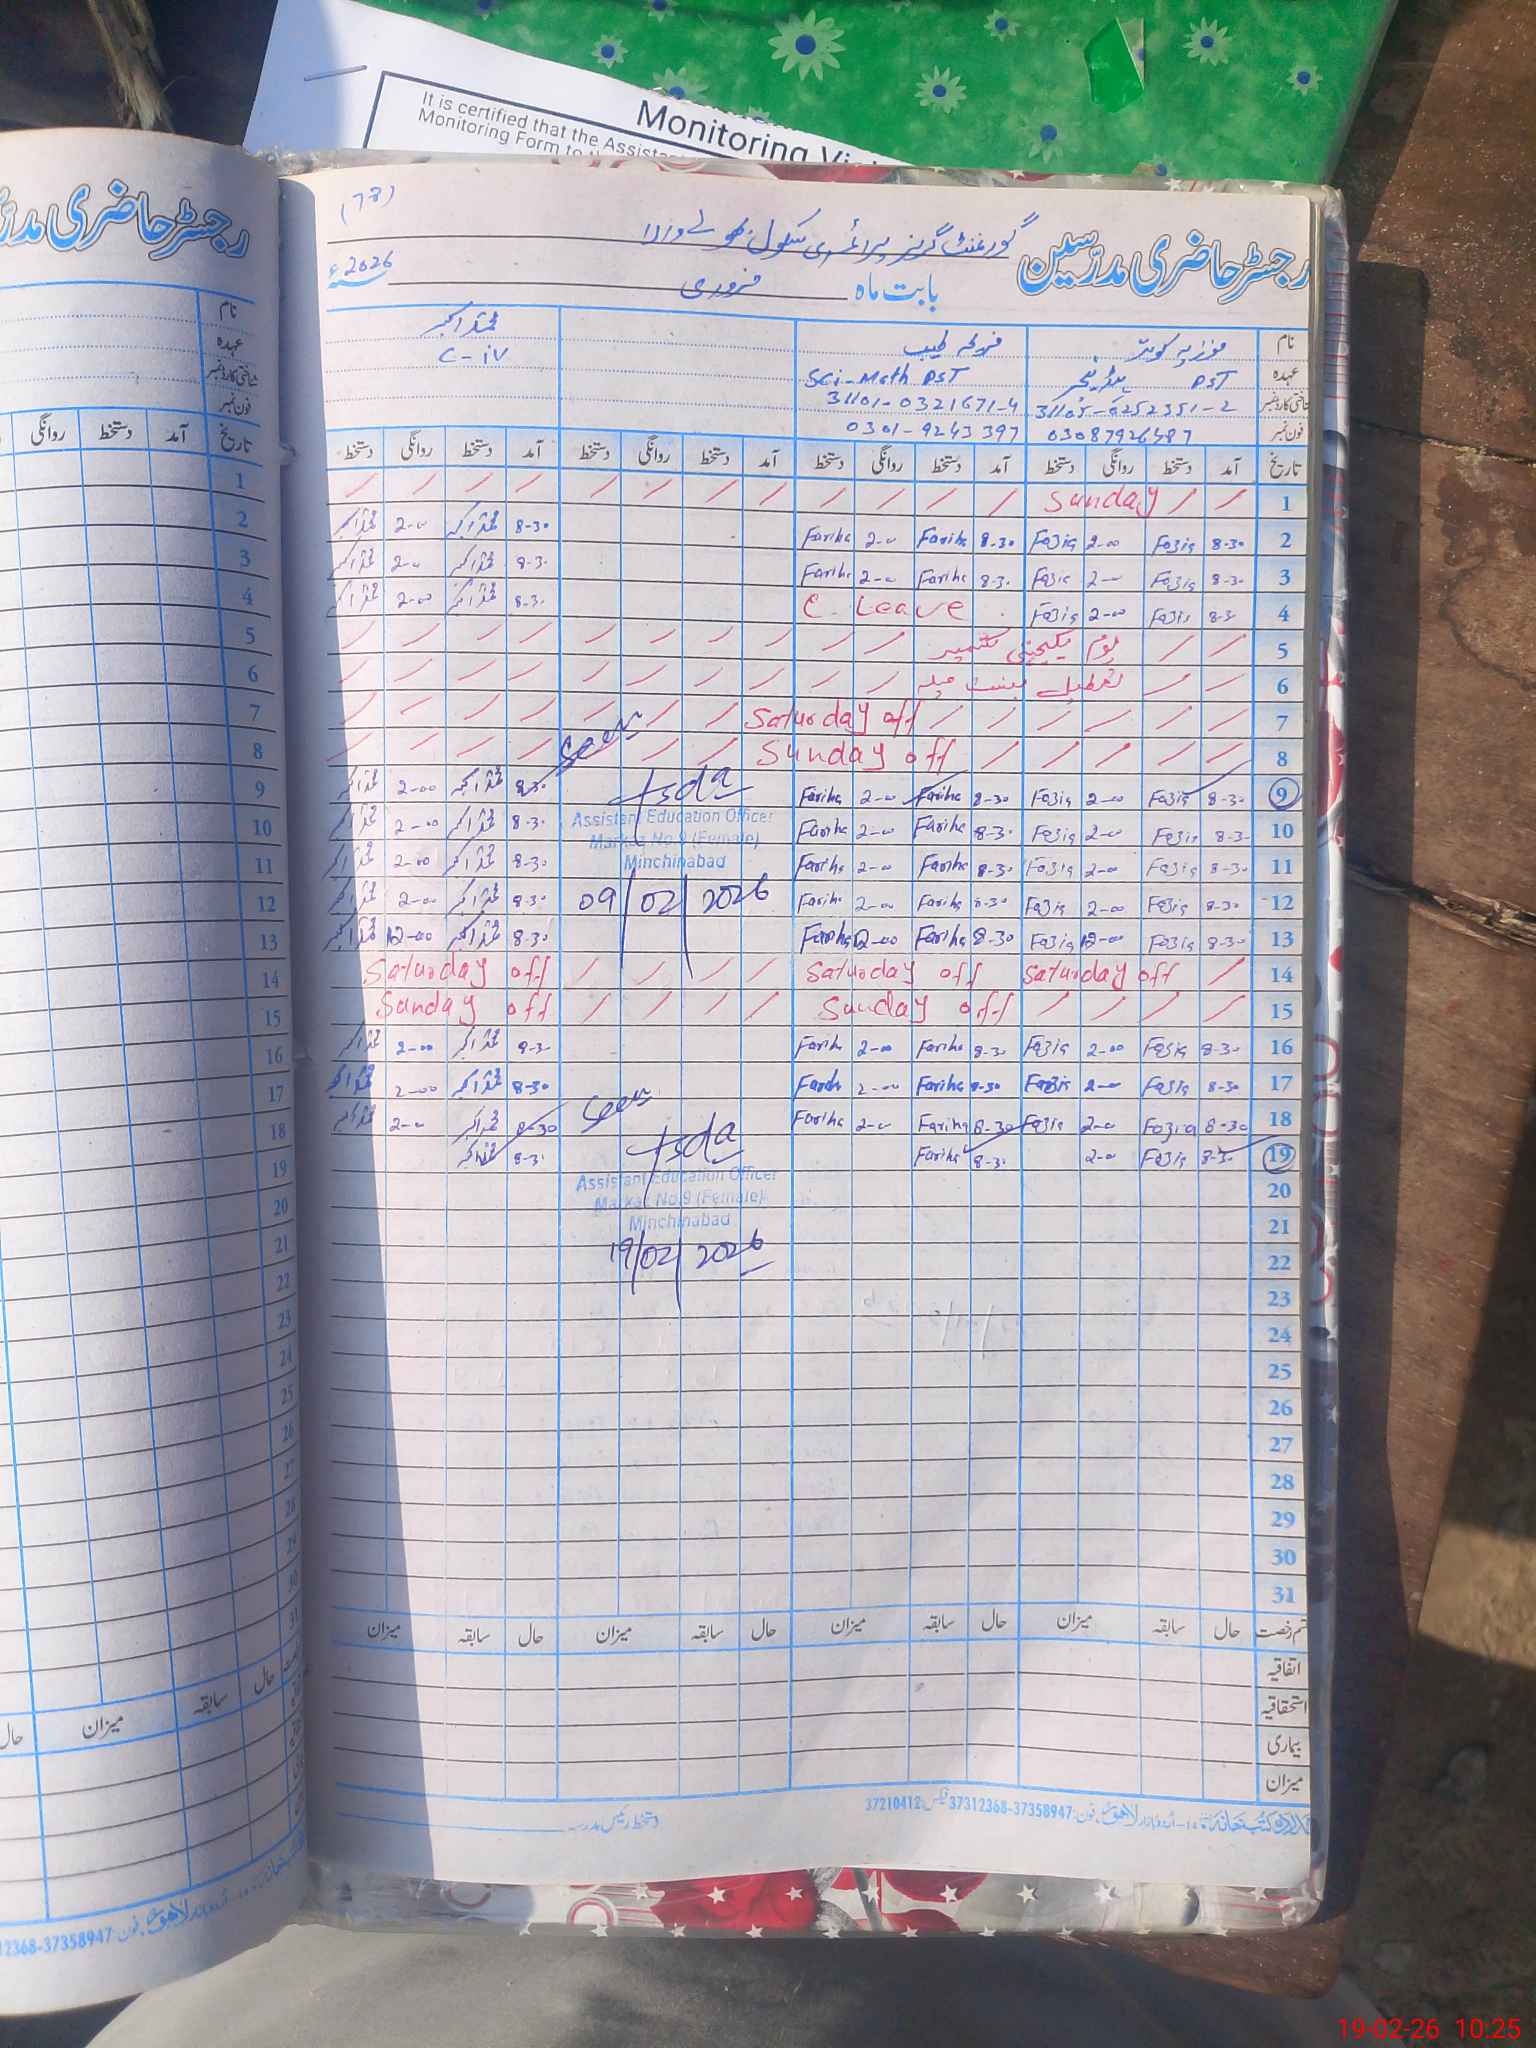 Monitoring
It is certified that the
Monitoring Form to
(78)
رجسٹر حاضری مدرّسین گورنمنٹ گرلز پرائمری سکول
بابت ماہ فروری سنہ 2026ء
نام فوزیہ کوثر فریحہ طیب محمد اکبر
عہدہ PST ہیڈ ٹیچر Sci-Math PST C-iv
شناختی کارڈ نمبر 31101-0321671-4
فون نمبر 03087926487 0301-9243397
تاریخ آمد دستخط روانگی دستخط آمد دستخط روانگی دستخط آمد دستخط روانگی دستخط آمد دستخط روانگی دستخط
1 Sunday
2 8-30 Fozia 2-00 Fozia 8-30 Fariha 2-0 Fariha 8-30 محمد اکبر 2-0 محمد اکبر
3 8-3. Fozia 2-0 Fozia 8-3. Fariha 2-0 Fariha 8-3. محمد اکبر 2-0 محمد اکبر
4 8-3. Fozia 2-00 Fozia C Leave 8-3. محمد اکبر 2-00 محمد اکبر
5 یوم یکجہتی کشمیر
6 تعطیل بسنت میلہ
7 Saturday off
8 Sunday off
Seen
9 8-30 Fozia 2-00 Fozia 8-30 Fariha 2-00 Fariha 8-30 محمد اکبر 2-00 محمد اکبر
Assistant Education Officer
Markaz No.9 (Female)
Minchinabad
09/02/2026
10 8-3. Fozia 2-0 Fozia 8-3. Fariha 2-0 Fariha 8-3. محمد اکبر 2-00 محمد اکبر
11 8-3. Fozia 2-00 Fozia 8-30 Fariha 2-00 Fariha 8-3. محمد اکبر 2-00 محمد اکبر
12 8-3. Fozia 2-00 Fozia 8-3. Fariha 2-00 Fariha 8-3. محمد اکبر 2-00 محمد اکبر
13 8-3. Fozia 12-00 Fozia 8-30 Fariha 12-00 Fariha 8-30 محمد اکبر 12-00 محمد اکبر
14 Saturday off Saturday off Saturday off
15 Sunday off Sunday off
16 8-3. Fozia 2-00 Fozia 8-3. Fariha 2-00 Farih 8-3. محمد اکبر 2-00 محمد اکبر
17 8-30 Fozia 2-0 Fozia 8-30 Fariha 2-00 8-30 محمد اکبر 2-00 محمد اکبر
Seen
18 8-30 Fozia 2-0 Fozia 8-30 Fariha 2-0 Fariha 8-30 محمد اکبر 2-0 محمد اکبر
19 8-3. Fozia 2-0 8-3. Fariha 8-3. محمد اکبر
Assistant Education Officer
Markaz No.9 (Female)
Minchinabad
19/02/2026
20
21
22
23
24
25
26
27
28
29
30
31
قسم رخصت حال سابقہ میزان حال سابقہ میزان حال سابقہ میزان حال سابقہ میزان
اتفاقیہ
استحقاقیہ
بیماری
میزان
فون: 37312368-37358947 فیکس: 37210412
دستخط رئیس مدرسہ
رجسٹر حاضری
نام
عہدہ
شناختی کارڈ نمبر
فون نمبر
تاریخ آمد دستخط روانگی
1
2
3
4
5
6
7
8
9
10
11
12
13
14
15
16
17
18
19
20
21
22
23
24
25
26
27
28
29
30
31
حال سابقہ میزان حال
12368-37358947
19-02-26 10:25